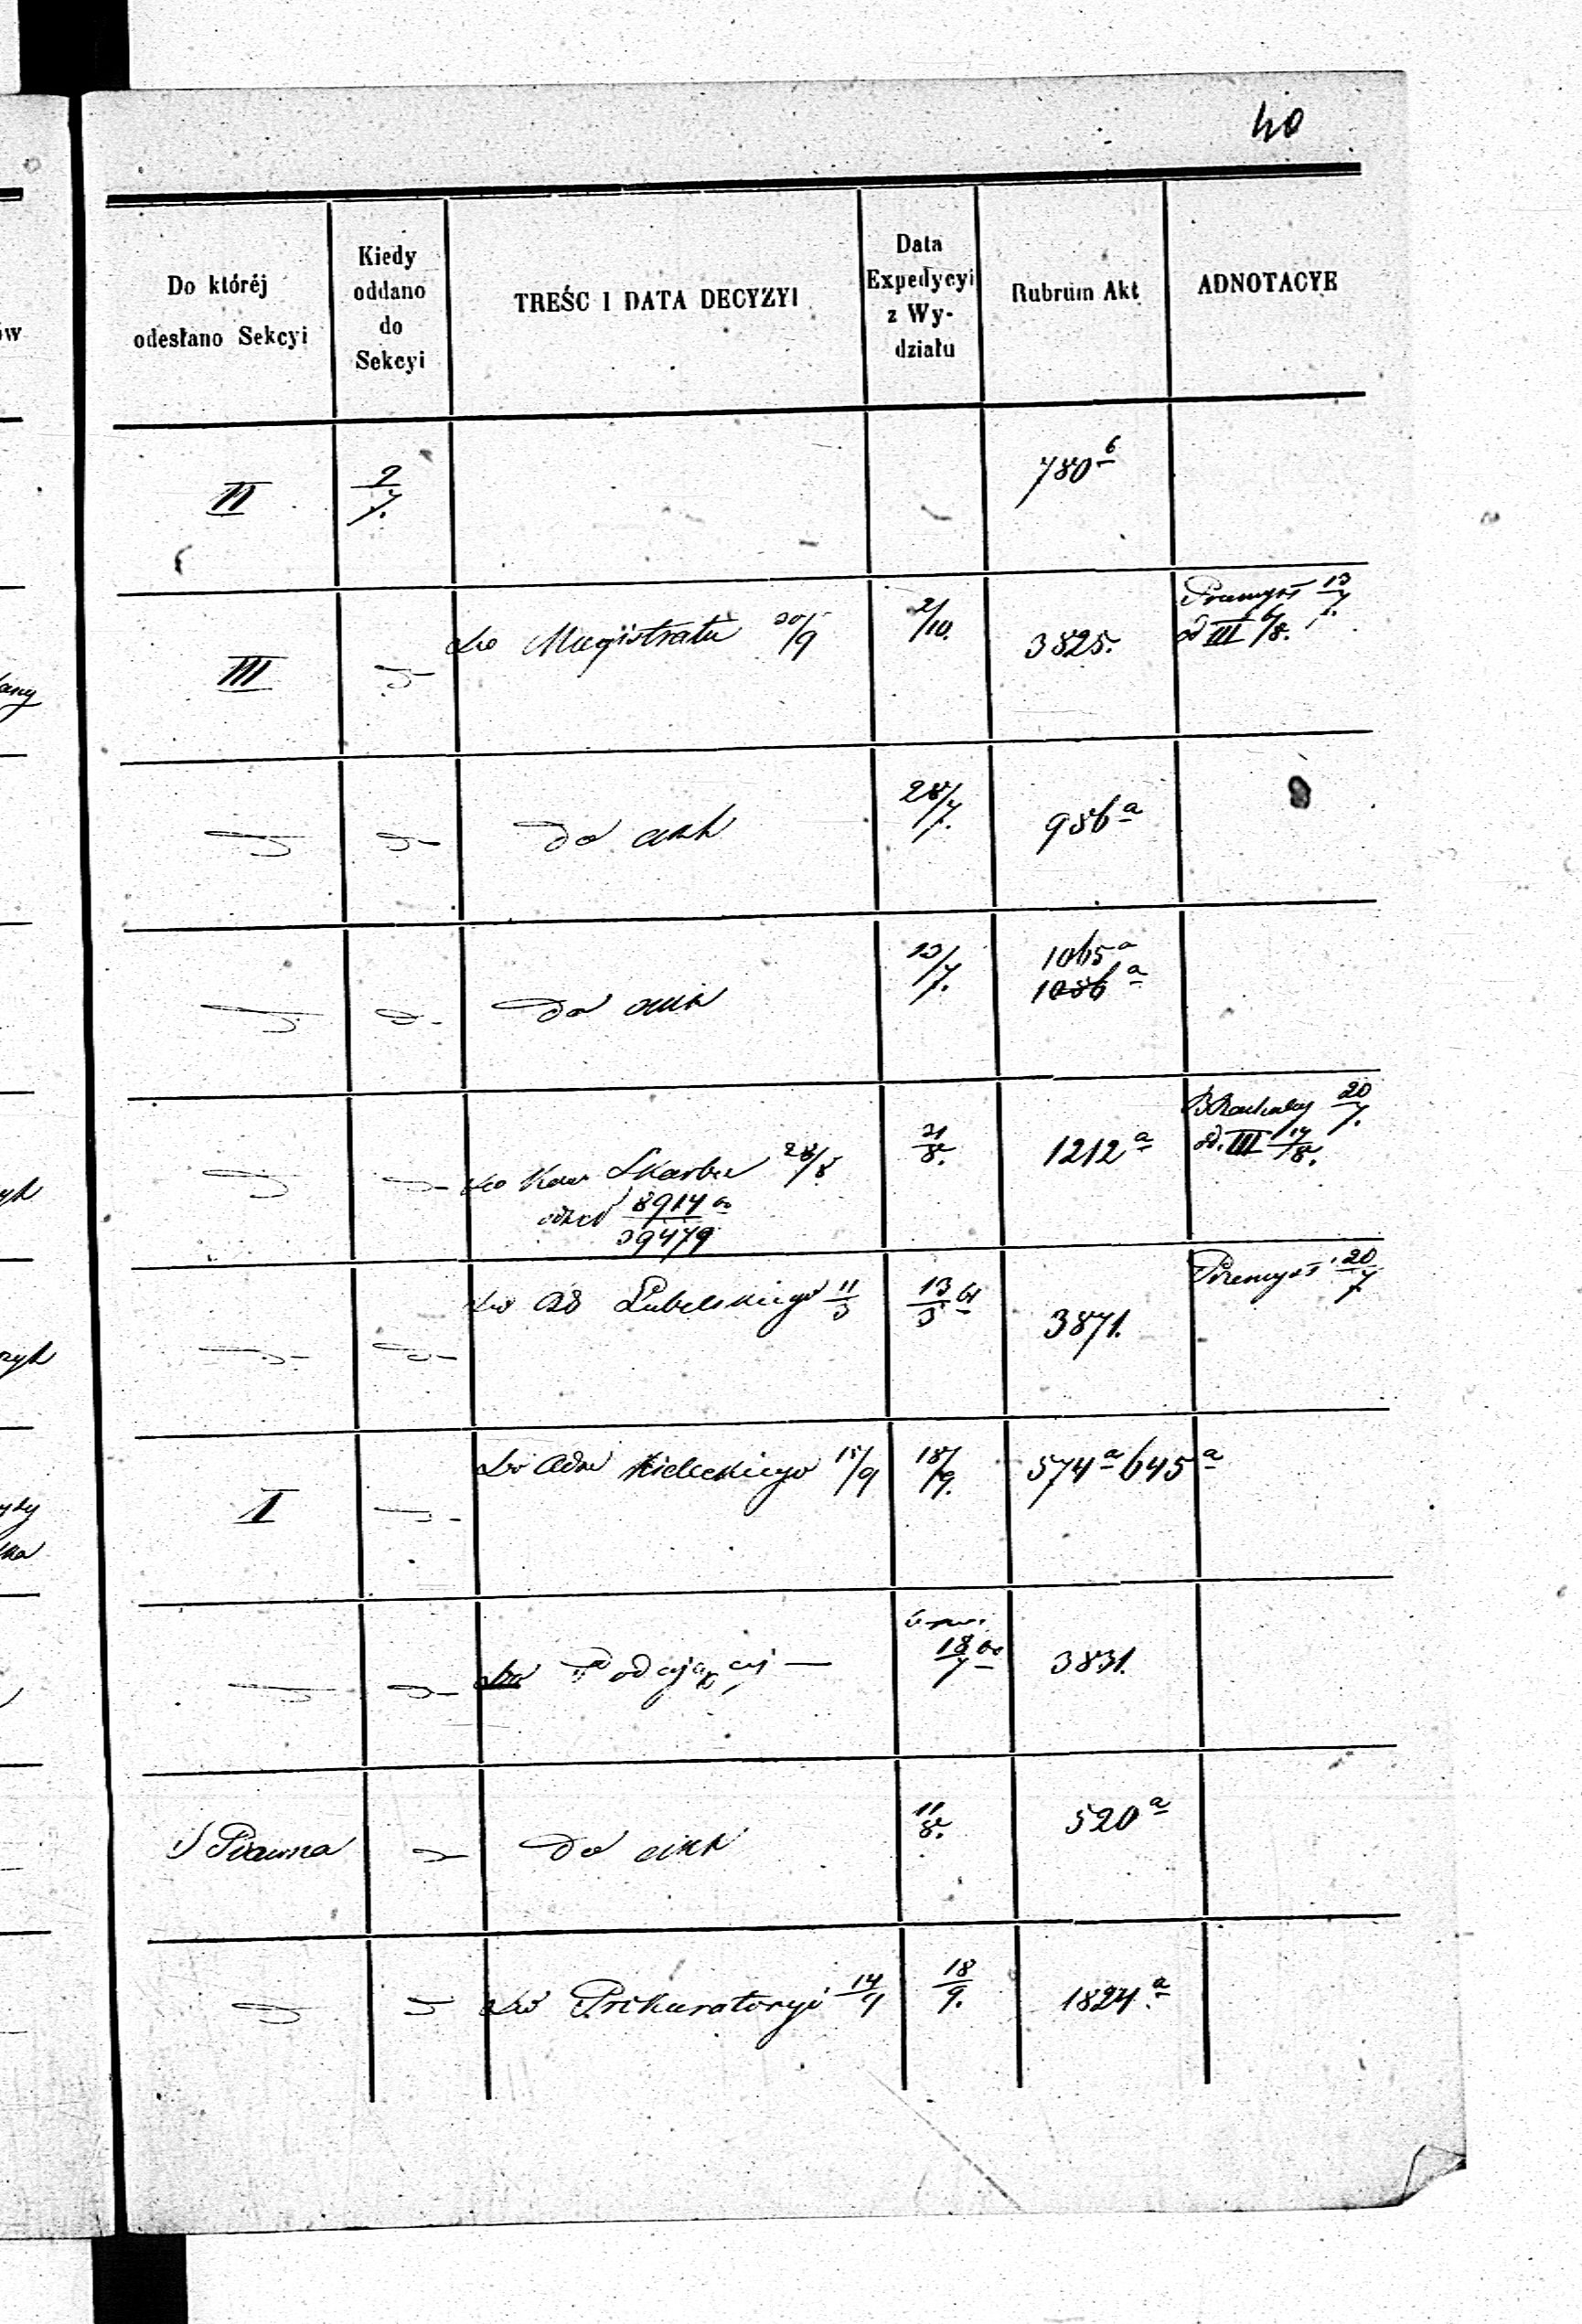 40
Do któréj
odesłano Sekcyi
Kiedy
oddano
do
Sekcyi
TREŚC I DATA DECYZYI
Data
Expedycyi
z Wy-
działu
Rubrum Akt
ADNOTACYE
II 9/7. 780 b
III Do Magistratu 30/9 2/10. 3825. Przemysł 13/7.
od III 6/8.
Do akt 28/7. 986 a
Do akt 13/7. 1065 a
1086 a
Do Kom Skarbu 28/8 31/8. 1212 a 20/7.
od. III 17/8.
8914
39479
Do Lubelskiego 11/3 13/3 61 3871. Przemysł 20/7
I Do Adm Kieleckiego 15/9 18/9. 574 a 645 a
18/7 3831.
S Prawna Do akt 11/8. 520 a
Do Prokuratoryi 14/9 18/9. 1824. a